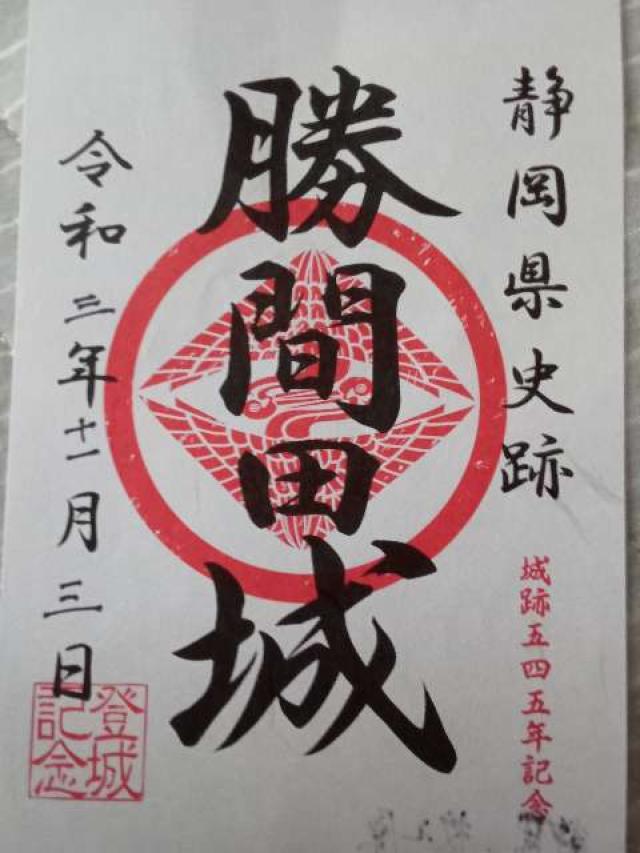 静岡県史跡
城跡五四五年記念
勝間田城
令和三年十一月三日
登城
記念